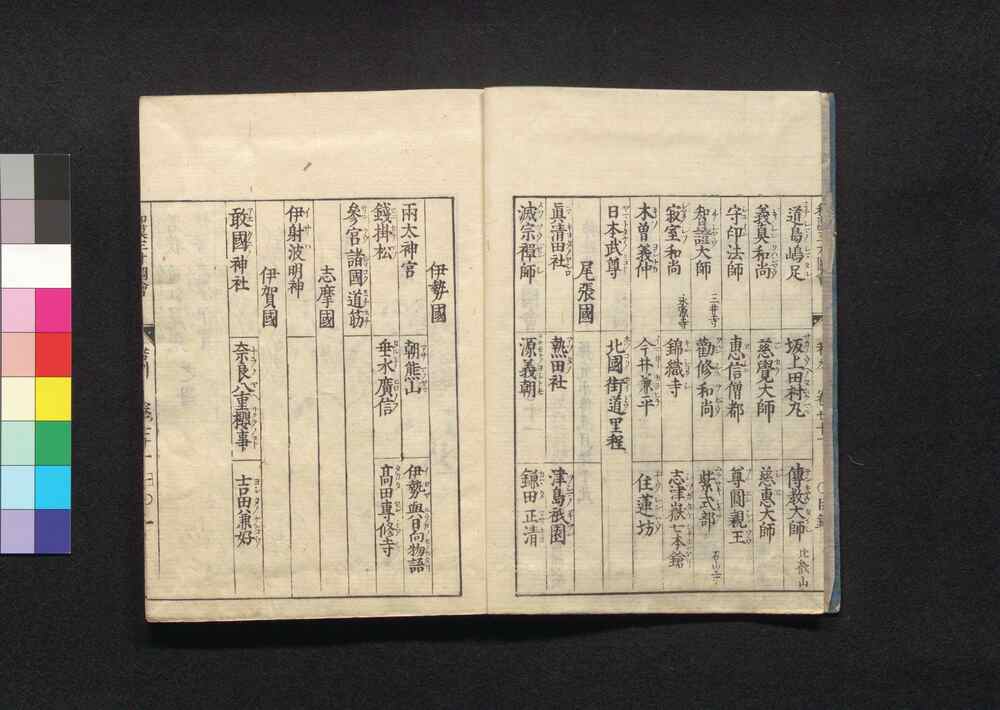 道島嶋足　坂上田村丸　傳教大師 比叡山
義真和尚　慈覺大師　慈惠大師
守印法師　惠信僧都　尊圓親王
智證大師 三井寺　勸修和尚　紫式部 石山寺
寂室和尚 永源寺　錦織寺　志津嶽七本鎗
木曽義仲　今井兼平　住蓮坊
日本武尊　北國街道里程
尾張國
眞清田社　熱田社　津島祇園
滅宗禅師　源義朝　鎌田正清
伊勢國
兩太神宮　朝熊山　伊勢與日向物語
錢掛松　垂水廣信　髙田專修寺
參宮諸國道筋
志摩國
伊射波明神
伊賀國
敢國神社　奈良八重櫻事　吉田兼好